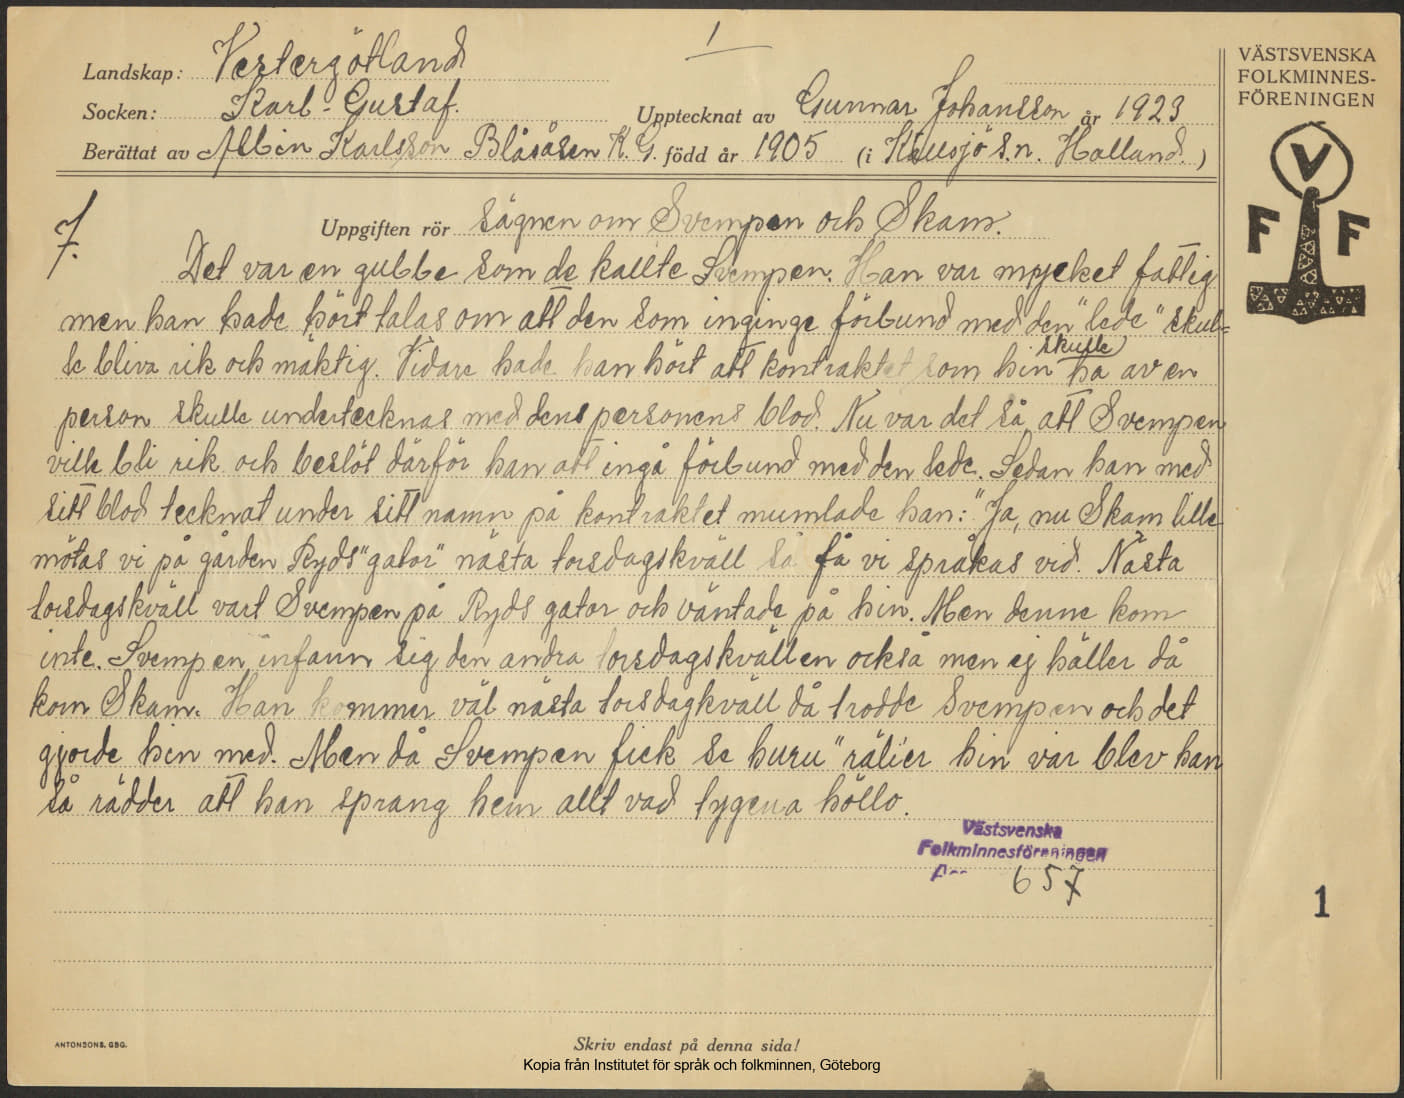 1
Landskap: Vestergötland
Socken: Karl-Gustaf.
Upptecknat av Gunnar Johansson år 1923
Berättat av Albin Karlsson Blåsåsen K. G. född år 1905 (i Källsjö s.n. Halland.)
VÄSTSVENSKA
FOLKMINNES-
FÖRENINGEN
V
F F
7.
Uppgiften rör sägnen om Svempen och Skam.
Det var en gubbe som de kallte Svempen. Han var mycket fattig
men han hade hört talas om att den som inginge förbund med den "lede" skul=
le bliva rik och mäktig. Vidare hade han hört att kontraktet som hin skulle ha av en
person skulle undertecknas med dens personens blod. Nu var det så att Svempen
ville bli rik och beslöt därför han att ingå förbund med den lede. Sedan han med
sitt blod tecknat under sitt namn på kontraktet mumlade han: "Ja, nu Skam lille
mötas vi på gården Ryds "gator" nästa torsdagskväll så få vi språkas vid. Nästa
torsdagskväll vart Svempen på Ryds gator och väntade på hin. Men denne kom
inte. Svempen infann sig den andra torsdagskvällen också men ej häller då
kom Skam. Han kommer väl nästa torsdagkväll då trodde Svempen och det
gjorde hin med. Men då Svempen fick se huru "rälier hin var blev han
så rädder att han sprang hem allt vad tygena höllo.
Västsvenska
Folkminnesföreningen
Acc 657
1
ANTONSONS, GBG.
Skriv endast på denna sida!
Kopia från Institutet för språk och folkminnen, Göteborg